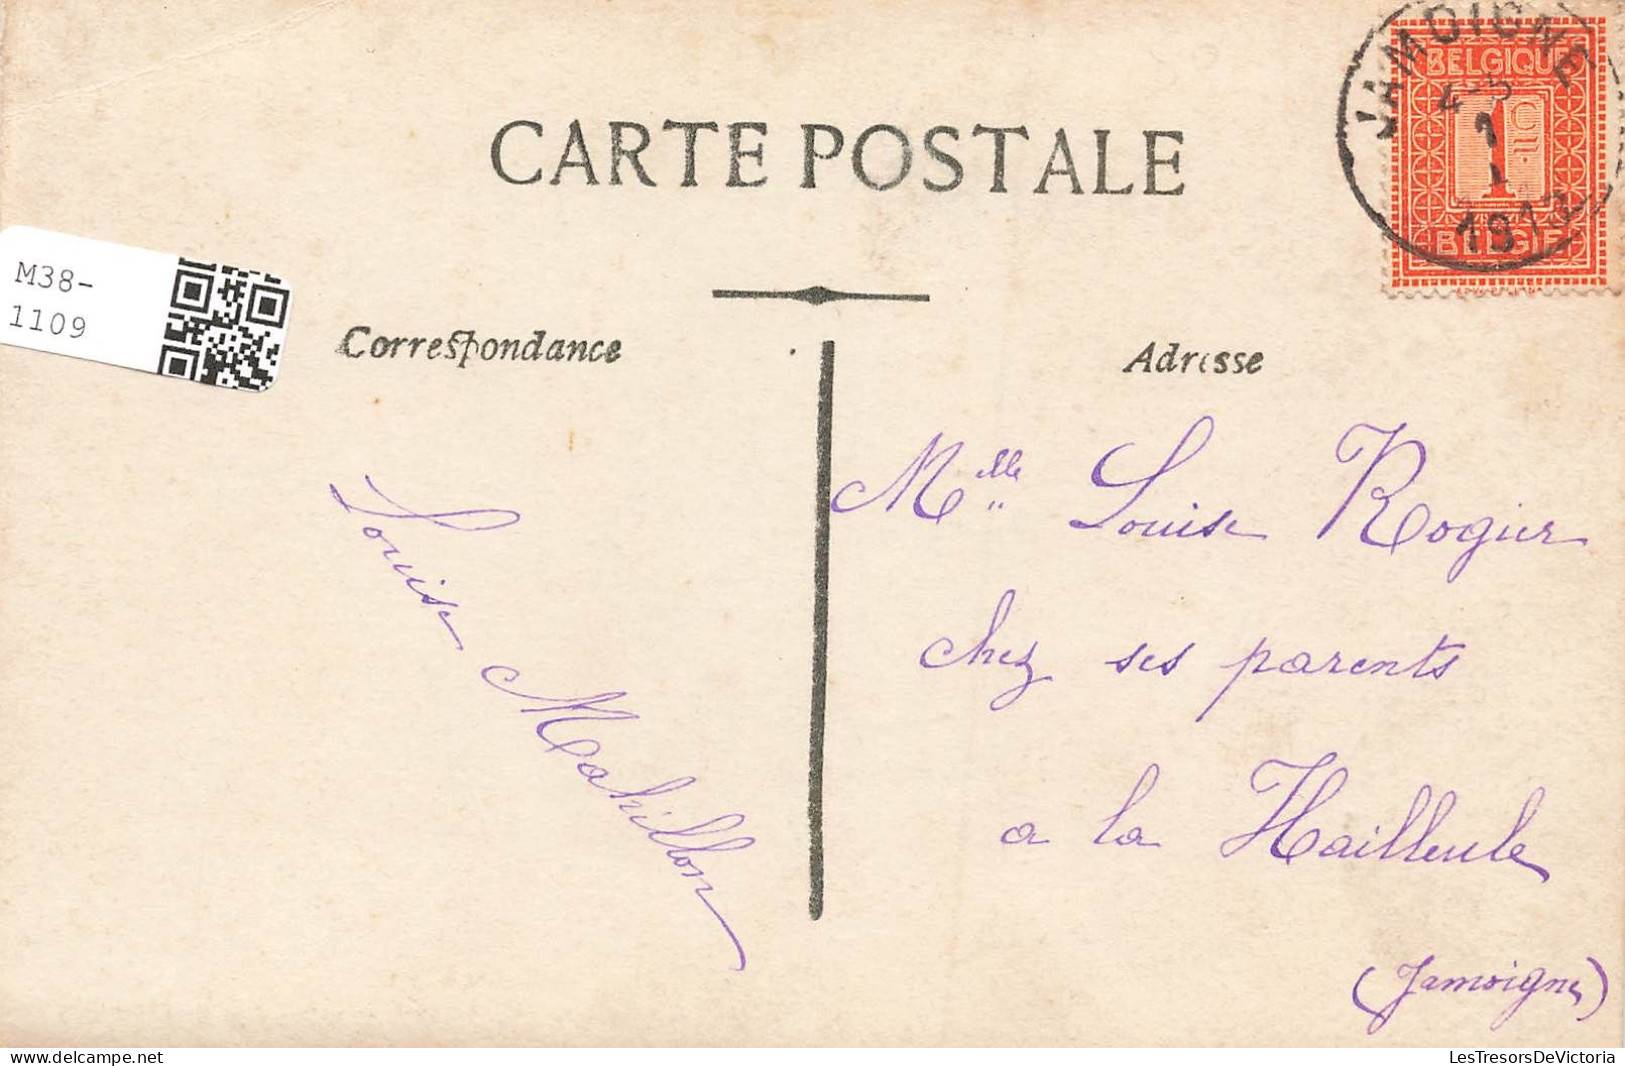 CARTE POSTALE
JAMOIGNE
4-5
1
1913
BELGIQUE
1 C.
BELGIË
M38-
1109
Correspondance
Adresse
Louise Mahillon
Melle Louise Rogier
chez ses parents
a la Hailleule
(Jamoigne)
delcampe.net
LesTresorsDeVictoria